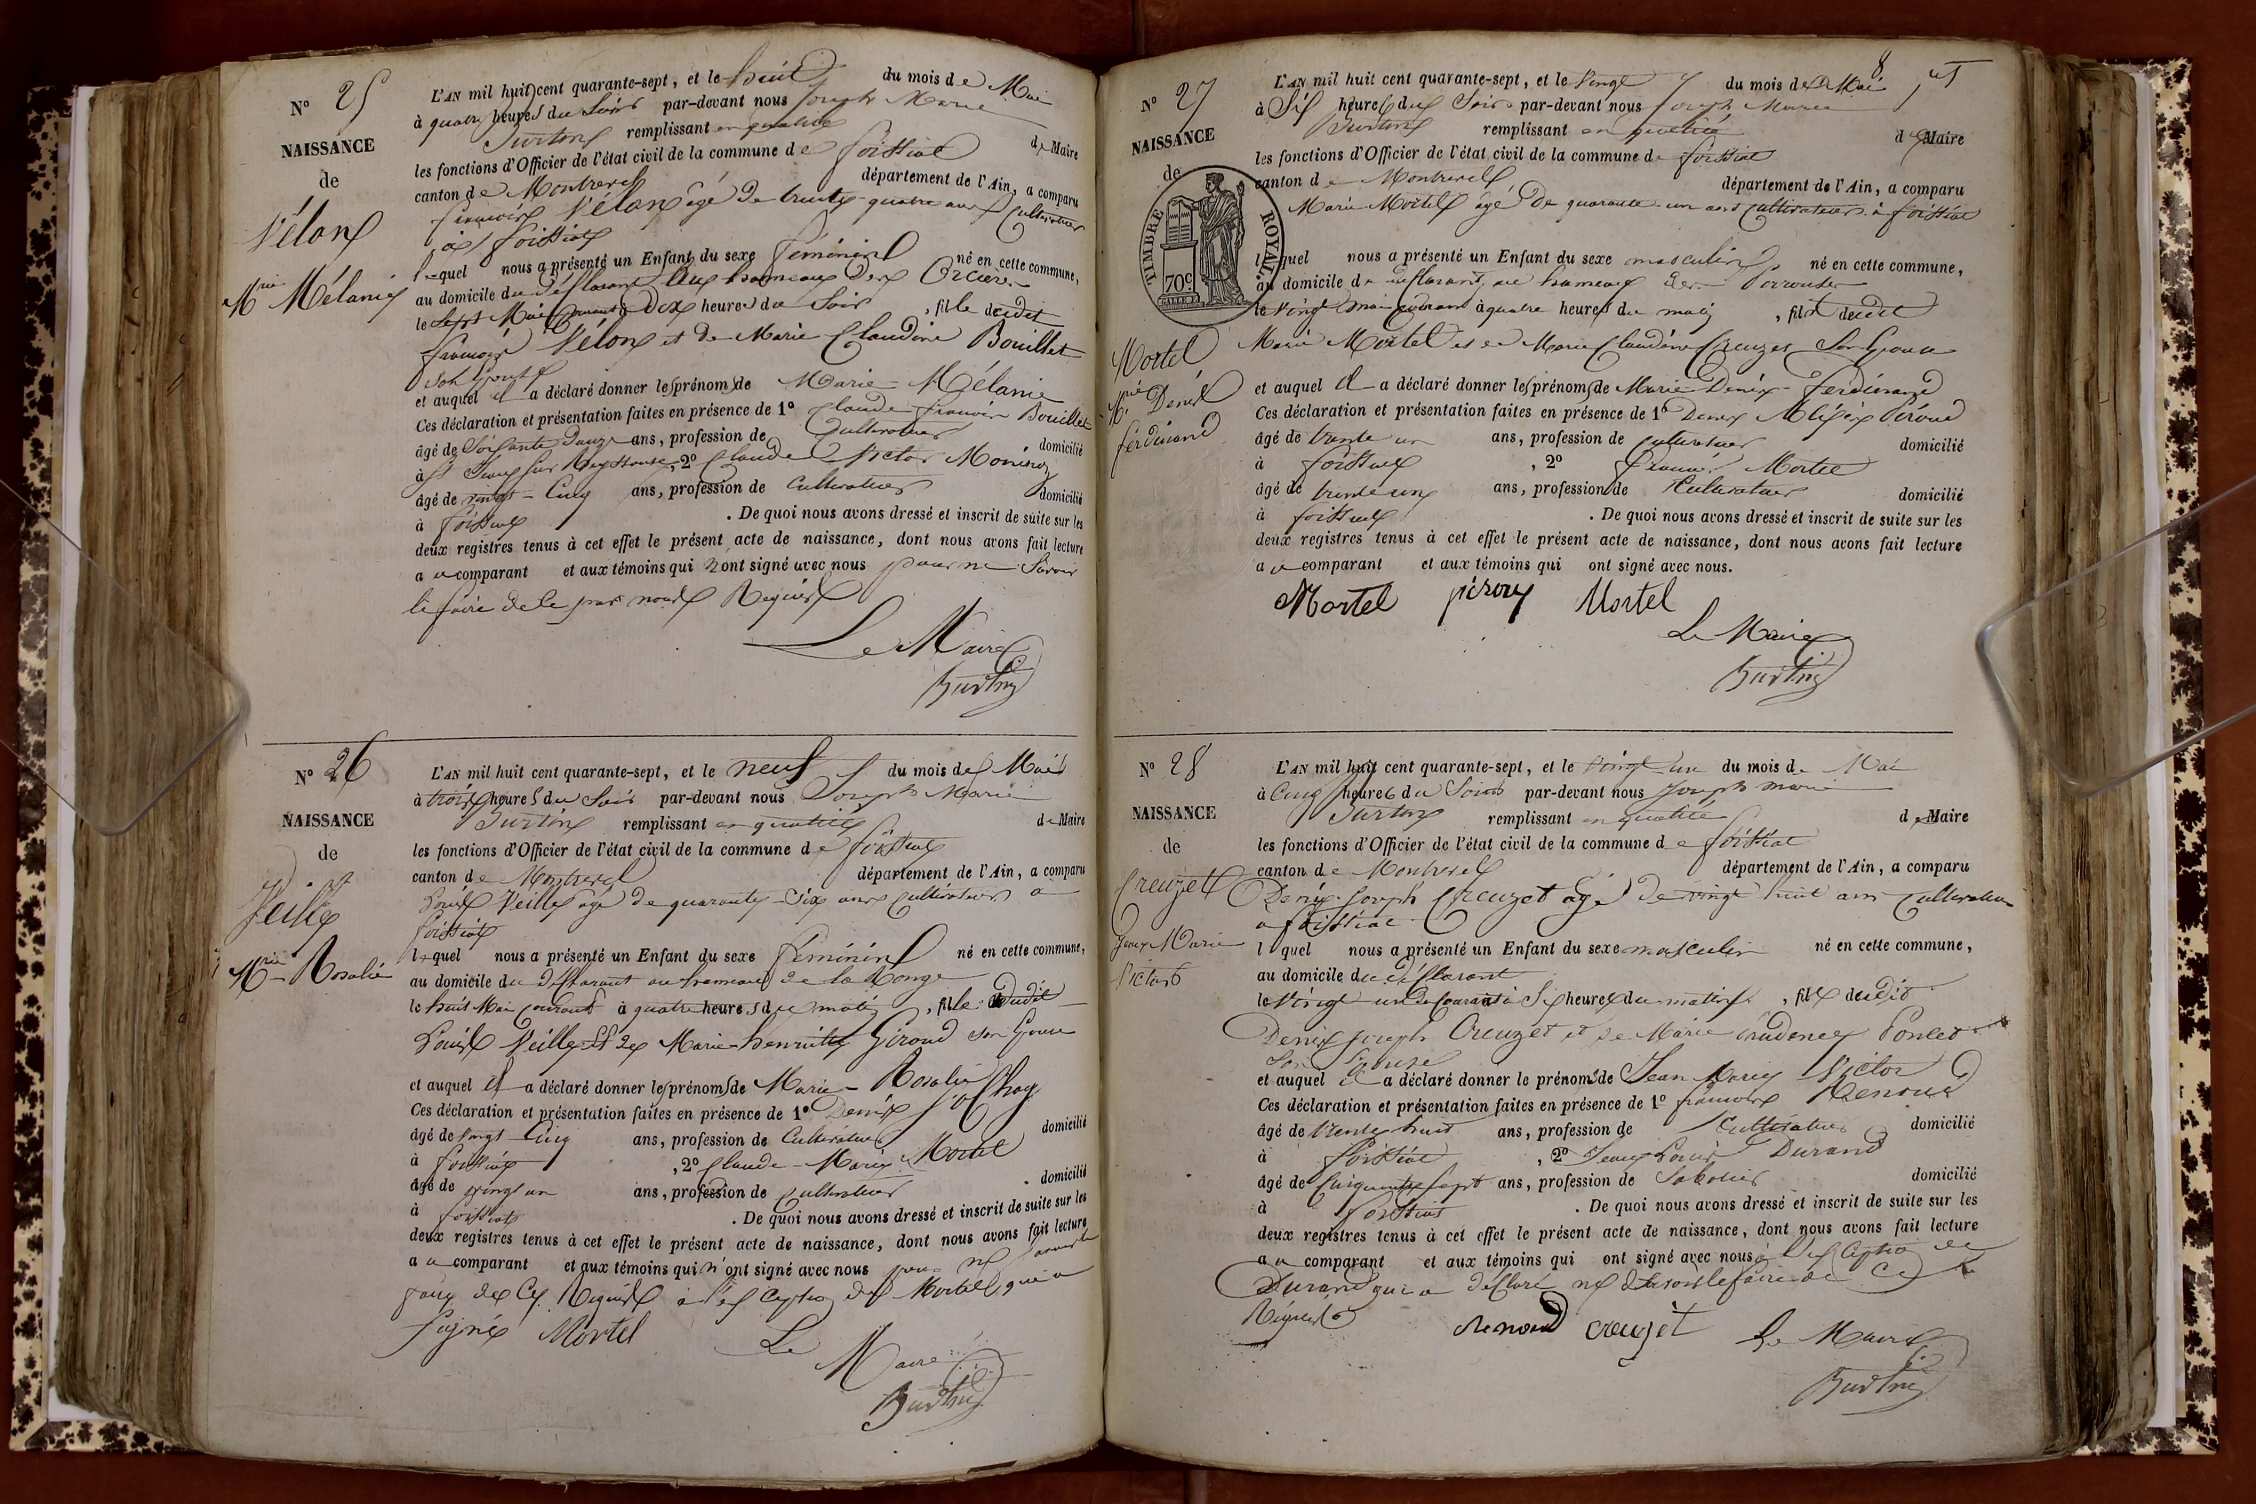 N° 25
NAISSANCE
de
Vélon
Mrie Mélanie
L'AN mil huit cent quarante-sept, et le huit du mois de Mai
à quatre heures du Soir par-devant nous Joseph Marie
Burtin remplissant en qualité de Maire
les fonctions d'Officier de l'état civil de la commune de foissiat
canton de Montrevel département de l'Ain, a comparu
françois Vélon agé de trente quatre ans Cultivateur
à foissiat
lequel nous a présenté un Enfant du sexe féminin né en cette commune,
au domicile du déclarant aux hameau des
le Sept Mai Courant à Dix heures du Soir, fille dudit
françois Vélon et de Marie Claudine Bouillet
son épouse
et auquel il a déclaré donner les prénoms de Marie Mélanie
Ces déclaration et présentation faites en présence de 1° Claude françois Bouillet
âgé de Soixante Douze ans, profession de Cultivateur domicilié
à St Jean sur Reyssouze, 2° Claude Victor
âgé de vingt-Cinq ans, profession de Cultivateur domicilié
à foissiat. De quoi nous avons dressé et inscrit de suite sur les
deux registres tenus à cet effet le présent acte de naissance, dont nous avons fait lecture
au comparant et aux témoins qui n'ont signé avec nous pour ne Savoir
le faire de ce par nous Requis
Le Maire
Burtin
N° 26
NAISSANCE
de
Veille
Mrie Rosalie
L'AN mil huit cent quarante-sept, et le neuf du mois de Mai
à trois heures du Soir par-devant nous Joseph Marie
Burtin remplissant en qualité de Maire
les fonctions d'Officier de l'état civil de la commune de foissiat
canton de Montrevel département de l'Ain, a comparu
Louis Veille agé de quarante-Six ans Cultivateur a
foissiat
lequel nous a présenté un Enfant du sexe féminin né en cette commune,
au domicile du déclarant au hameau de la Ronge
le huit Mai Courant à quatre heures du matin, fille dudit
Louis Veille et de Marie henriette Giroud son épouse
et auquel il a déclaré donner les prénoms de Marie-Rosalie
Ces déclaration et présentation faites en présence de 1° Denis
âgé de vingt-Cinq ans, profession de Cultivateur domicilié
à foissiat, 2° Claude-Marie Mortel
âgé de vingt un ans, profession de Cultivateur domicilié
à foissiat. De quoi nous avons dressé et inscrit de suite sur les
deux registres tenus à cet effet le présent acte de naissance, dont nous avons fait lecture
au comparant et aux témoins qui n'ont signé avec nous pour ne
de ce Requis à l'exception de Mortel qui a
Signé Mortel Le Maire
Burtin
8
N° 27
NAISSANCE
de
TIMBRE ROYAL.
70c
Mortel
Mrie Denis
ferdinand
L'AN mil huit cent quarante-sept, et le Vingt du mois de Mai
à Six heures du Soir par-devant nous Joseph Marie
Burtin remplissant en qualité de Maire
les fonctions d'Officier de l'état civil de la commune de foissiat
canton de Montrevel département de l'Ain, a comparu
Marie Mortel agé de quarante un ans Cultivateur à foissiat
lequel nous a présenté un Enfant du sexe masculin né en cette commune,
au domicile du déclarant, au hameau des
le Vingt mai courant à quatre heures du matin, fils dudit
Marie Mortel et de Marie Claudine Creuzet Son épouse
et auquel il a déclaré donner les prénoms de Marie Denis ferdinand
Ces déclaration et présentation faites en présence de 1° Denis
âgé de trente un ans, profession de Cultivateur domicilié
à foissiat, 2° françois Mortel
âgé de trente cinq ans, profession de Cultivateur domicilié
à foissiat. De quoi nous avons dressé et inscrit de suite sur les
deux registres tenus à cet effet le présent acte de naissance, dont nous avons fait lecture
au comparant et aux témoins qui ont signé avec nous.
Mortel péroux Mortel
Le Maire
Burtin
N° 28
NAISSANCE
de
Creuzet
Jean Marie
Victor
L'AN mil huit cent quarante-sept, et le Vingt un du mois de Mai
à Cinq heures du Soir par-devant nous Joseph marie
Burtin remplissant en qualité de Maire
les fonctions d'Officier de l'état civil de la commune de foissiat
canton de Montrevel département de l'Ain, a comparu
Denis Joseph Creuzet agé de vingt huit ans Cultivateur
a foissiat
lequel nous a présenté un Enfant du sexe masculin né en cette commune,
au domicile du déclarant
le Vingt un du Courant à Six heures du matin, fils dudit
Denis Joseph Creuzet et de Marie prudence Poncet
Son épouse
et auquel il a déclaré donner le prénoms de Jean Marie Victor
Ces déclaration et présentation faites en présence de 1° françois Renoud
âgé de trente huit ans, profession de Cultivateur domicilié
à foissiat, 2° Jean Louis Durand
âgé de Cinquante Sept ans, profession de Sabotier domicilié
à foissiat. De quoi nous avons dressé et inscrit de suite sur les
deux registres tenus à cet effet le présent acte de naissance, dont nous avons fait lecture
au comparant et aux témoins qui ont signé avec nous à l'exception de
Durand qui a déclaré ne savoir le faire de ce
Requis
Renoud creuzet Le Maire
Burtin